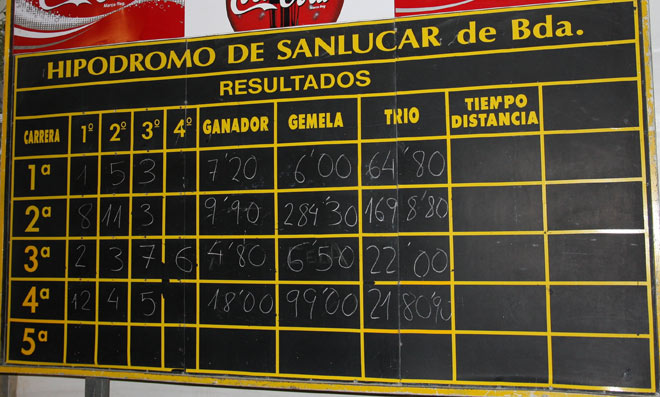 Coca-Cola
Marca Reg
Coca-Cola
Marca Reg.
HIPODROMO DE SANLUCAR de Bda.
RESULTADOS
CARRERA 1º 2º 3º 4º GANADOR GEMELA TRIO TIEMPO DISTANCIA
1ª 1 5 3 7'20 6'00 64'80
2ª 8 11 3 9'90 284'30 1698'80
3ª 2 3 7 6 4'80 6'50 22'00
4ª 12 4 5 18'00 99'00
5ª